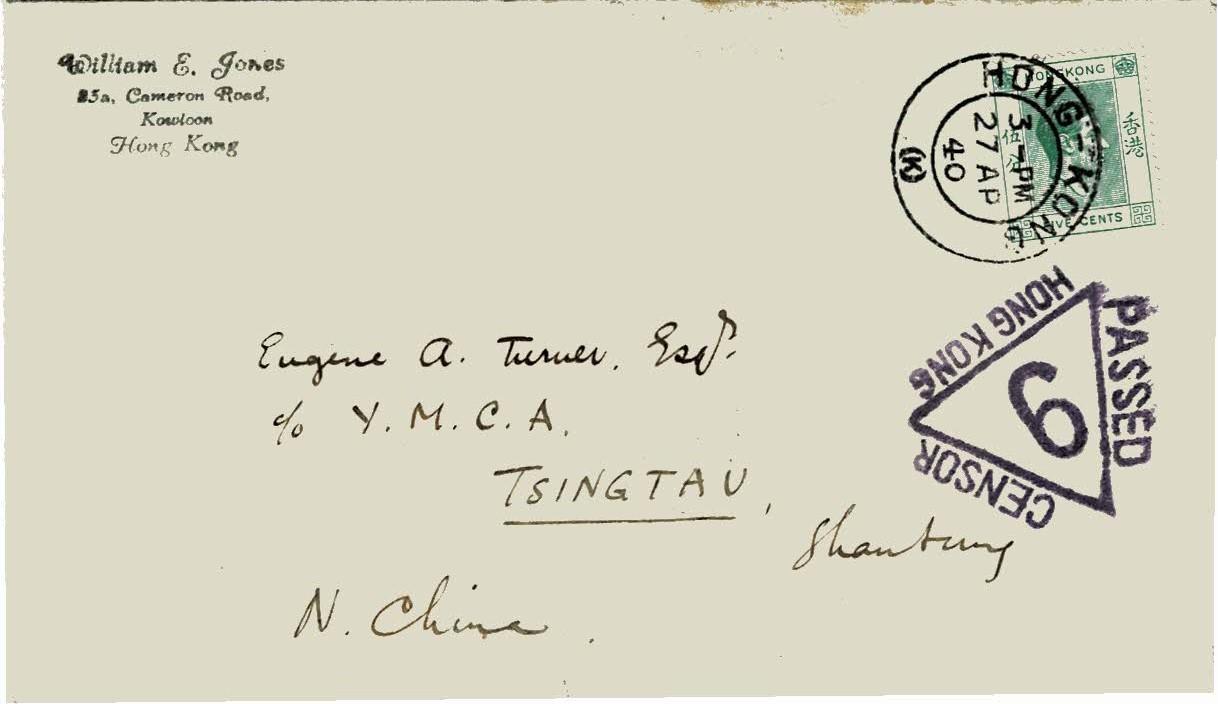 William E. Jones
25a, Cameron Road,
Kowloon
Hong Kong
HONGKONG
香港
伍分
FIVE CENTS
HONG-KONG
3-PM
27 AP
40
(K)
HONG KONG
PASSED
CENSOR
9
Eugene A. Turner, Esqr.
c/o Y. M. C. A.
TSINGTAU,
Shantung
N. China.